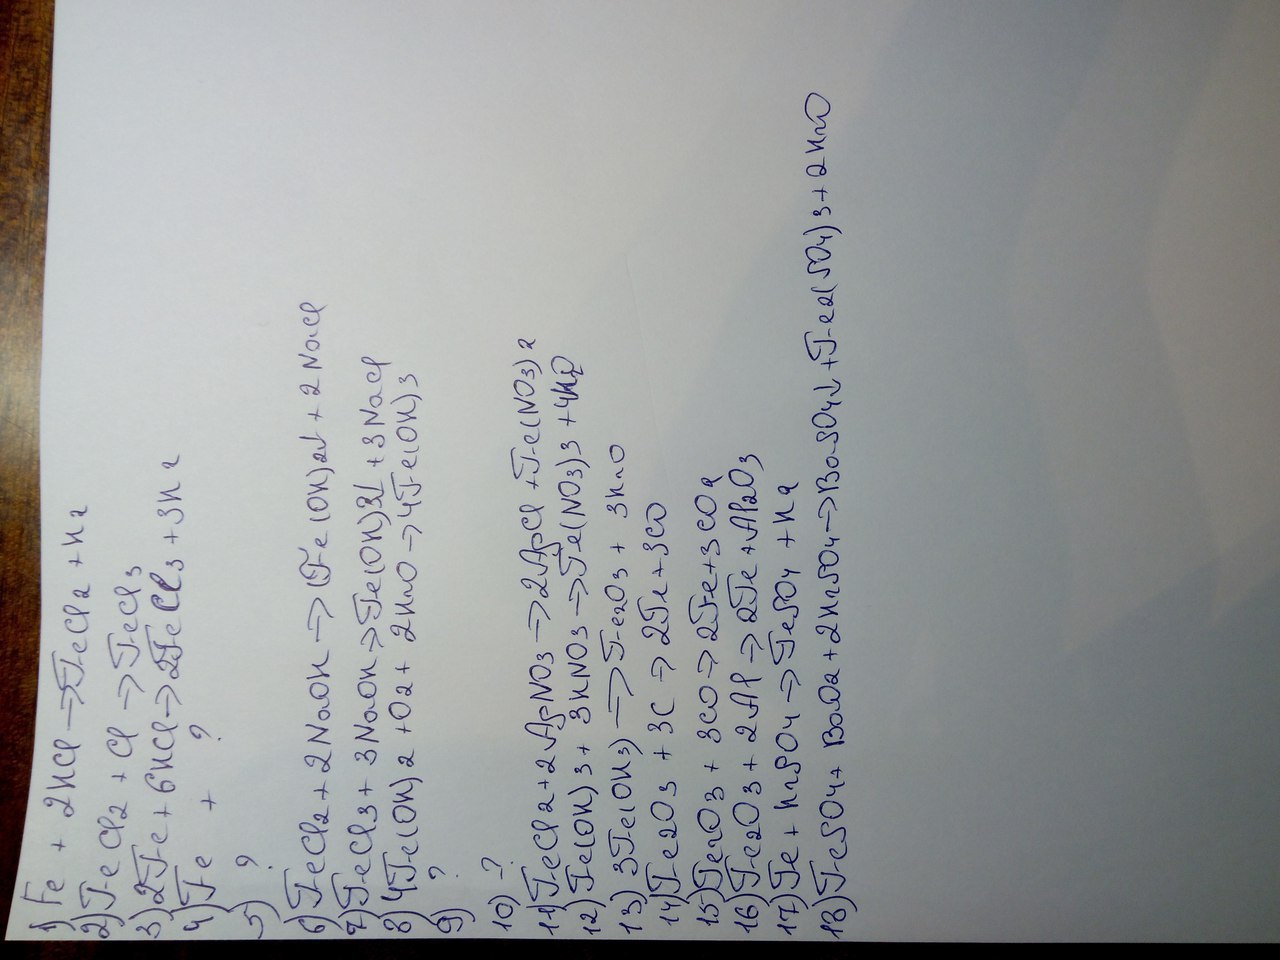 1) Fe + 2HCl → FeCl2 + H2
2) FeCl2 + Cl → FeCl3
3) 2Fe + 6HCl → 2FeCl3 + 3H2
4) Fe + ?
5) ?
6) FeCl2 + 2NaOH → (Fe(OH)2↓ + 2NaCl
7) FeCl3 + 3NaOH → Fe(OH)3↓ + 3NaCl
8) 4Fe(OH)2 + O2 + 2H2O → 4Fe(OH)3
9) ?
10) -?
11) FeCl2 + 2AgNO3 → 2AgCl + Fe(NO3)2
12) Fe(OH)3 + 3HNO3 → Fe(NO3)3 + 4H2O
13) 3Fe(OH3) → Fe2O3 + 3H2O
14) Fe2O3 + 3C → 2Fe + 3CO
15) Fe2O3 + 3CO → 2Fe + 3CO2
16) Fe2O3 + 2Al → 2Fe + Al2O3
17) Fe + H2SO4 → FeSO4 + H2
18) FeSO4 + BaO2 + 2H2SO4 → BaSO4↓ + Fe2(SO4)3 + 2H2O